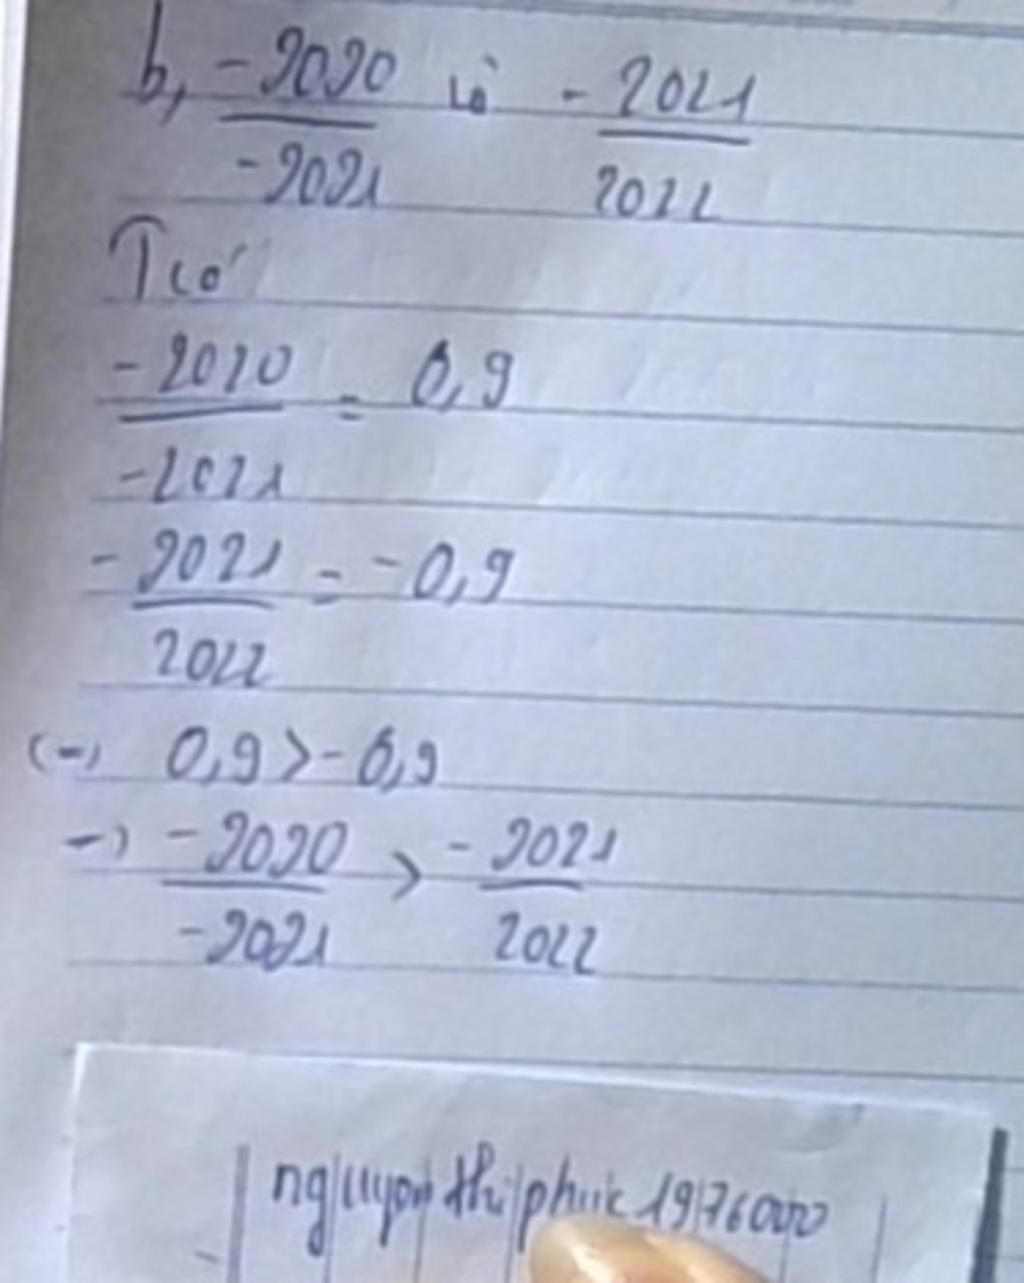 b, -2020 và -2021
-2021 2022
Tcó
-2020 = 0,9
-2021
-2021 = -0,9
2022
(-) 0,9 > -0,9
-) -2020 > -2021
-2021 2022
nguyen thi phuk 1976000